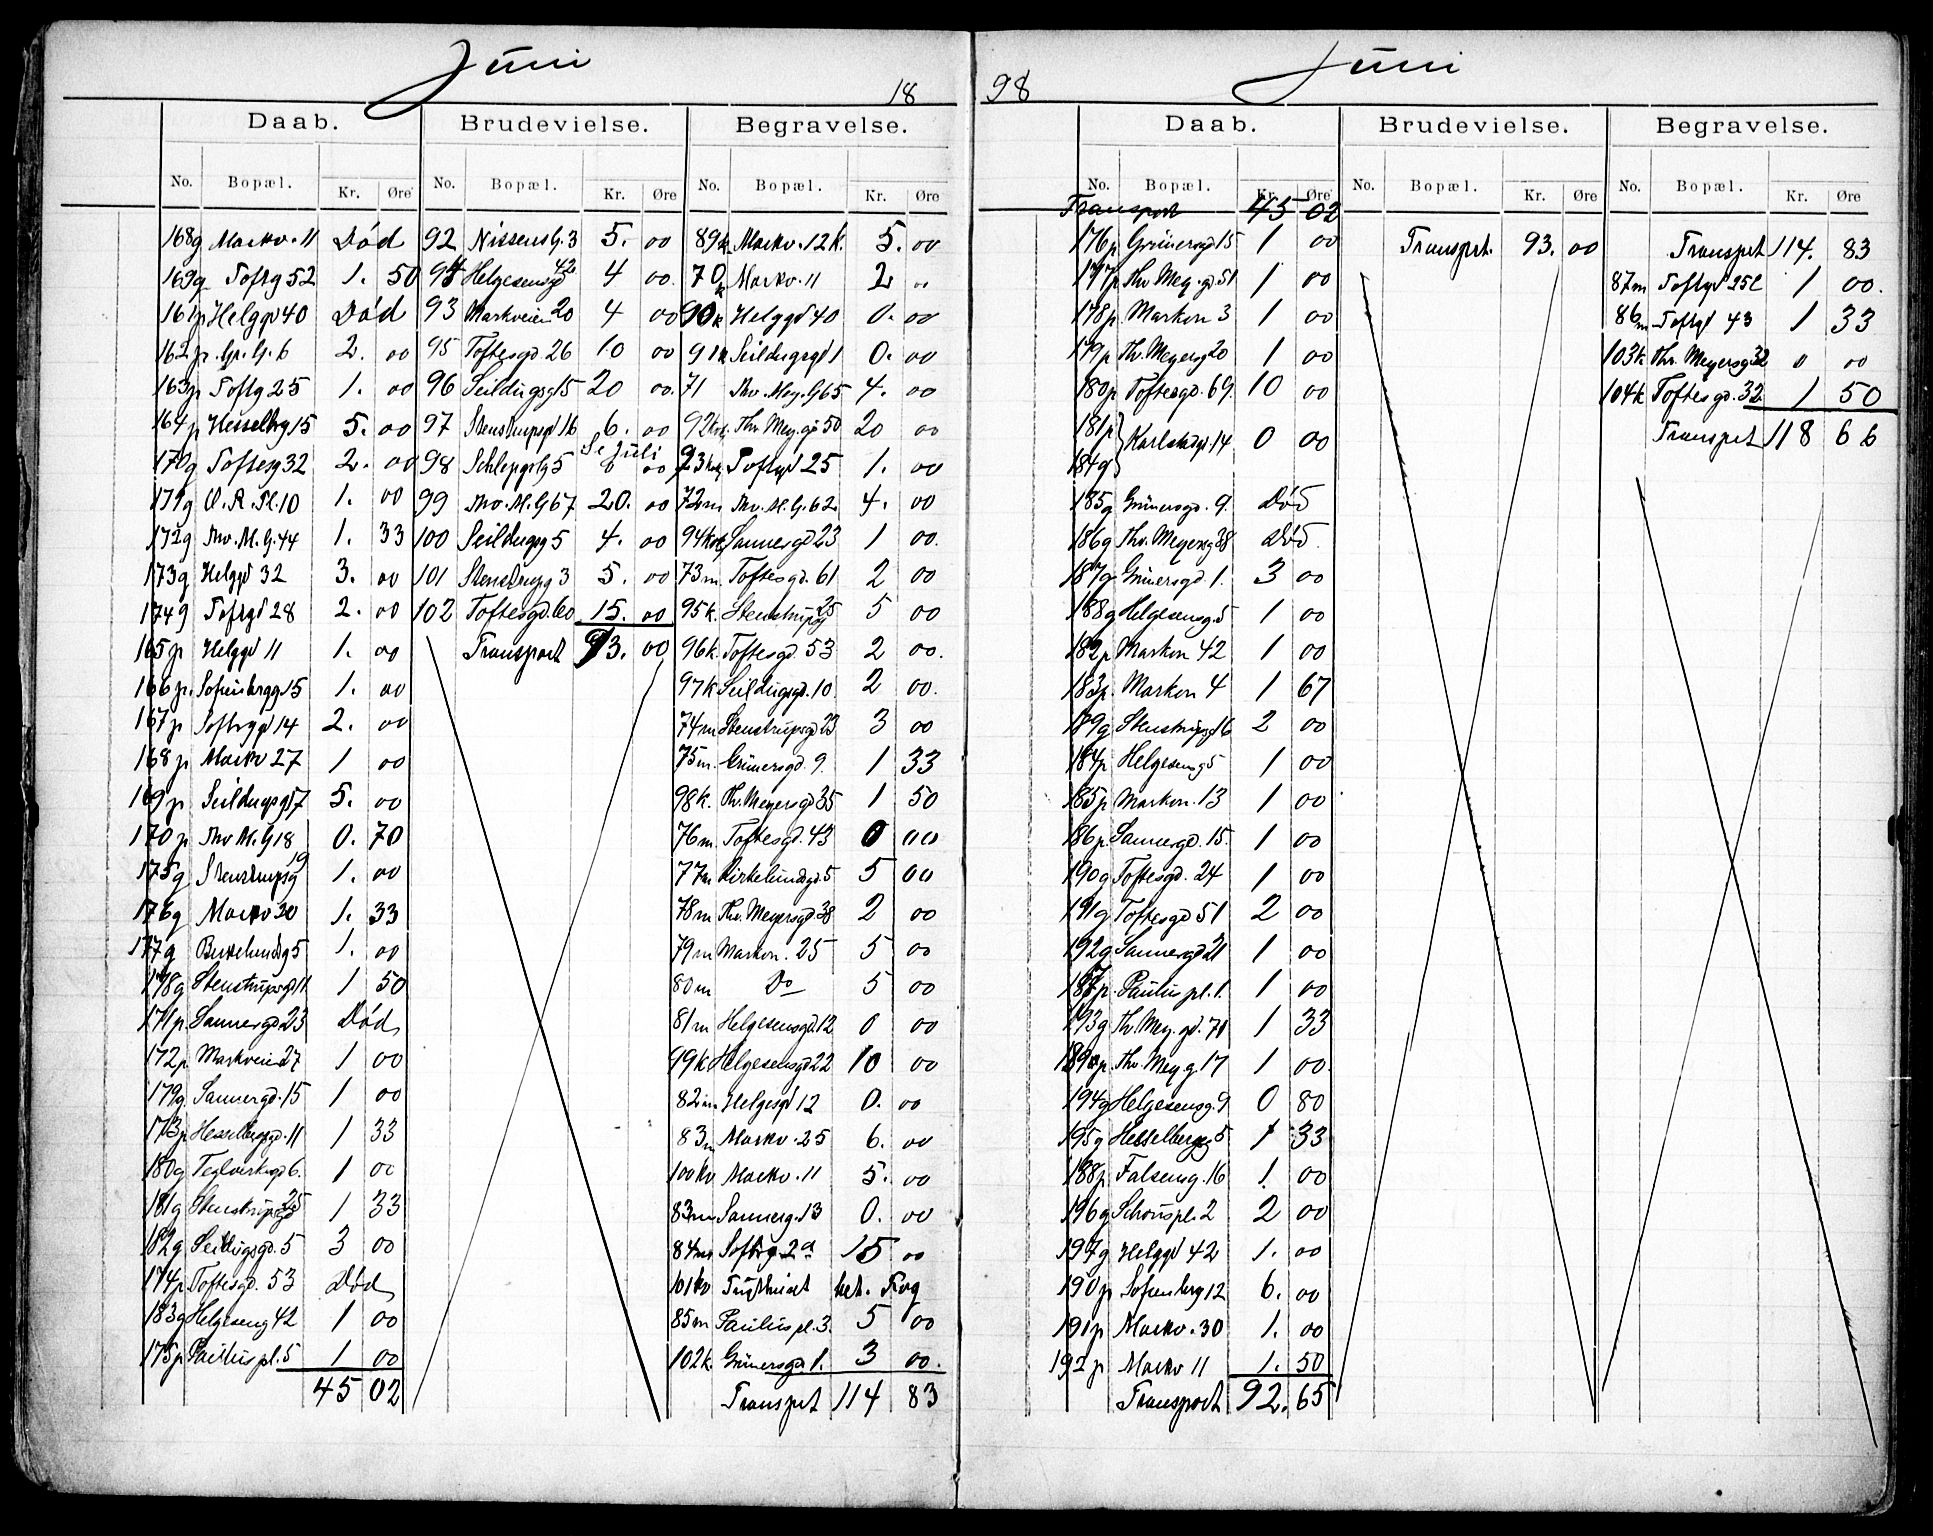 Juni
18
Daab.
No. Bopæl. Kr. Øre
168g Markv. 11 Død
169g Toftg 52 1. 50
161p Helggd 40 Død
162p. Gr. G. 6 2. 00
163p Toftg 25 1. 00
164p Hesselbg 15 5. 00
170g Toftesg 32 2. 00
171g O. R. Pl. 10 1. 00
172g Thv. M. G. 44 1. 33
173g Helggd 32 3. 00
174g Toftgd 28 2. 00
165p Helggd 11 1. 00
166p. Sofienbergg 15 1. 00
167p Sofbrggd 14 2. 00
168p Markv 27 1 00
169p Seildugsgd 7 5. 00
170p Thv M. G 18 0. 70
175g Stenstrupsg 19 1. 00
176g Markv 30 1. 33
177g 5 1. 00
178g Stenstrupsgd 11 1 50
171p. Sannergd 23 Død
172p Markveien 27 1 00
179g. Sannergd. 15 1 00
173p Hesselbergsgd. 11 1 33
180g Teglverksgd 6. 1 00
181g Stenstrupsgd 25 1 33
182g Seildugsgd. 5 3 00
174p Toftesgd. 53 Død
183g Helgeseng 42 1 00
175p Paulus pl. 5 1 00
45 02
Brudevielse.
No. Bopæl. Kr. Øre
92 Nissens G. 3 5. 00
94 Helgesensgd 42 4 00.
93 Markveien 20 4 00
95 Toftesgd 26 10 00
96 Seildugsg 15 20 00.
97 Stenstrupsgd 16 6. 00
Se Juli
98 Schleppegg 5 6 00
99 Thv. M. G 67 20. 00
100 Seildugsg 5 4. 00
101 Stenstrupg 3 5. 00
102 Toftesgd. 60 15. 00
Transport 93. 00
Begravelse.
No. Bopæl. Kr. Øre
89k Markv. 12 K. 5. 00
70k Markv. 11 2 "
90k Helggd 40 0. 00
91k Seildugsgd 1 0. 00
71 Thv. Mey. G 65 4. 00
92kv. Thv. Mey. gd 50 20 00
93kv. Toftgd 25 1. 00
72m Thv. M. G. 62 4. 00
94kv Sannergd 23 1 00.
73m. Toftesgd. 61 2 00
95k. Stenstrupsg 25 5 00
96k. Toftesgd. 53 2 00.
97k Seildugsgd. 10 2 00.
74m Stenstrupsgd 23 3 00
75m. Grünersgd. 9. 1 33
98k. Thv. Meyersgd 35 1 50
76m Toftesgd. 43 0 00
77m Birkelundsgd. 5 5 00
78m Thv. Meyersgd. 38 2 00
79m Markvn. 25 5 00
80m Do 5 00
81m Helgesensgd. 12 0 00
99k Helgesensgd 22 10 00
82m Helgesgd 12 0. 00
83m Markv. 25 6. 00
100kv Markv. 11 5. 00
83m Sannerg. 13 0. 00
84m Sofbrg 2a 15 00
101kv
85m Paulus pl. 3. 5 00
102k. Grünersgd. 1. 3 00.
Transprt 114 83
98
Juni
Daab.
No. Bopæl. Kr. Øre
Transport 45 02
176p Grünersgd 15 1 00
177p Thv. Mey. gd. 51 1 00
178p. Markvn 3 1 00
179p Thv. Meyersg 20 1 00
180p Toftesgd. 69. 10 00
181p
184g } Karlstadgd. 14 0 00
185g Grünersgd. 9. Død
186g Thv. Meyersg 38 Død.
187g Grünersgd. 1. 3 00
188g Helgesensg. 5 1 00
182p Markvn 42 1 00
183p. Markvn 4 1 67
189g Stenstrupsgd 16 2 00
184p Helgesensg 5 1 00
185p Markvn. 13 1 00
186p. Sannergd. 15. 1 00
190g Toftesgd. 24 1 00
191g Toftesgd 51 2 00
192g Sannergd 21 1 00
187p. Paulus pl. 1. 1 00
193g Thv. Mey. gd. 71 1 33
189p. Thv. Mey g. 17 1 00
194g Helgesensg. 9 0 80
195g Hesselbergsg 5 1 33
188p Falsensg. 16 1. 00
196g Schous pl. 2 2 00
197g Helggd 42 1. 00
190p Sofienberg 12 6. 00
191p Markv. 30 1. 00
192p Markv 11 1. 50
Transport 92. 65
Brudevielse.
No. Bopæl. Kr. Øre
Transprt. 93. 00
Begravelse.
No. Bopæl. Kr. Øre
Transprt 114. 83
87m Toftgd 25c 1 00.
86m Toftgd 43 1 33
103k Thv. Meyersg 32 0 00
104k Toftesgd. 32 1 50
Transprt 118 66